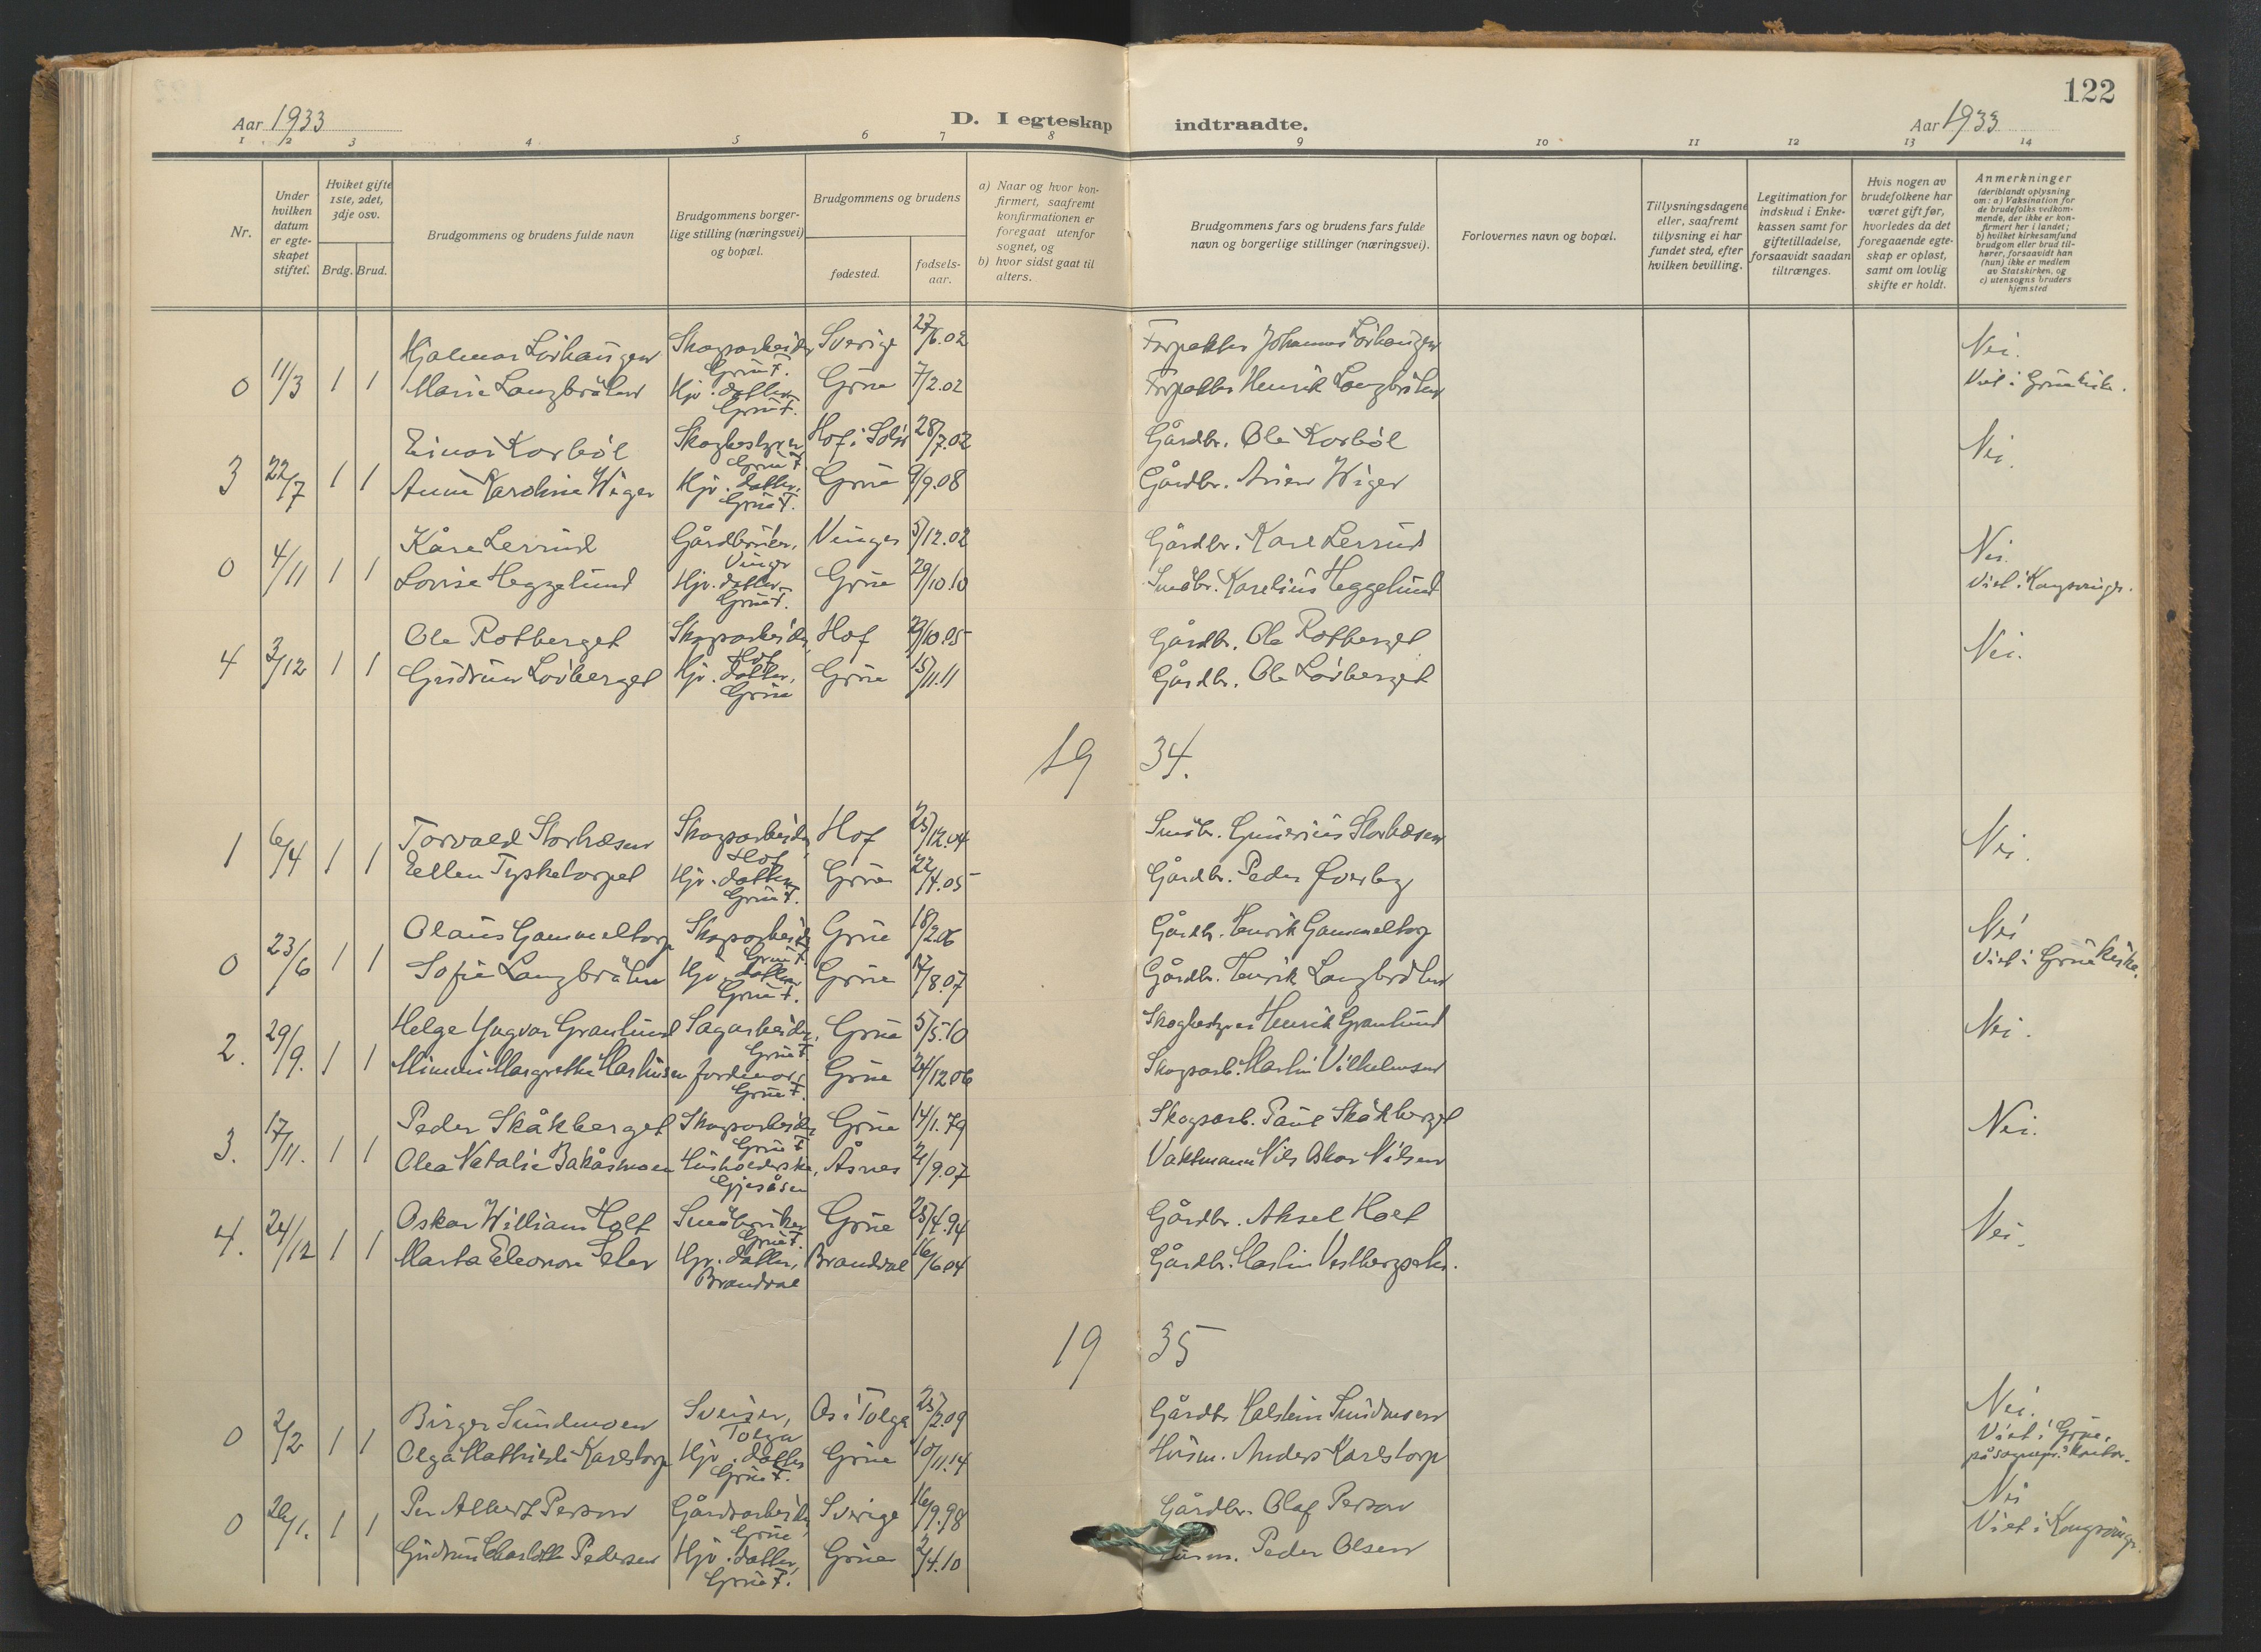 122
Aar 1933
D. I egteskap indtraadte.
Aar 1933
1 2 3 4 5 6 7 8 9 10 11 12 13 14
Nr.
Under hvilken datum er egteskapet stiftet.
Hviket gifte 1ste, 2det, 3dje osv.
Brdg. Brud.
Brudgommens og brudens fulde navn
Brudgommens borgerlige stilling (næringsvei) og bopæl.
Brudgommens og brudens
fødested.
fødselsaar.
a) Naar og hvor konfirmert, saafremt konfirmationen er foregaat utenfor sognet, og
b) hvor sidst gaat til alters.
Brudgommens fars og brudens fars fulde navn og borgerlige stillinger (næringsvei).
Forlovernes navn og bopæl.
Tillysningsdagene eller, saafremt tillysning ei har fundet sted, efter hvilken bevilling.
Legitimation for indskud i Enkekassen samt for giftetilladelse, forsaavidt saadan tiltrænges.
Hvis nogen av brudefolkene har været gift før, hvorledes da det foregaaende egteskap er opløst, samt om lovlig skifte er holdt.
Anmerkninger (deriblandt oplysning om: a) Vaksination for de brudefolks vedkommende, der ikke er konfirmert her i landet; b) hvilket kirkesamfund brudgom eller brud tilhører, forsaavidt han (hun) ikke er medlem av Statskirken, og c) utensogns bruders hjemsted
Hjalmar Lövhaugen Skogsarbeider Grue F. Sverige 27/6.02 Forpakter Johannes Lövhaugen Nei.
0 11/3 1 1 Marie Langbråten Hjv. datter Grue F. Grue 7/2.02 Forpakter Henrik Langbråten Viet i Grue kirke.
Einar Korböl Skogbestyrer Grue F. Hof i Solör 28/7.02 Gårdbr. Ole Korböl Nei.
3 22/7 1 1 Anne Karoline Wiger Hjv. datter, Grue F. Grue 9/9.08 Gårdbr. Wiger
Kåre Lerrud Gårdbruker, Vinger Vinger 5/12.02 Gårdbr. Karl Lerrud Nei.
0 4/11 1 1 Lovise Heggelund Hjv. datter Grue F. Grue 29/10.10 Småbr. Karelius Heggelund Viet i Kongsvinger.
Ole Rotberget Skogsarbeider, Hof Hof 29/10.05 Gårdbr. Ole Rotberget Nei.
4 3/12 1 1 Gudrun Lövberget Hjv. datter, Grue Grue 15/11.11 Gårdbr. Ole Lövberget
19 34.
Torvald Storhæsen Skogsarbeider, Hof Hof 25/12.04 Småbr. Gunerius Storhæsen Nei.
1 6/4 1 1 Eellen Tysketorpet Hjv. datter Grue F. Grue 22/4.05 Gårdbr. Peder Øverby
Olaus Gammeltorp Skogsarbeider Grue F. Grue 18/2.06 Gårdb. Henrik Gammeltorp Nei
0 23/6 1 1 Sofie Langbråten Hjv. datter Grue F. Grue 17/8.07 Gårdbr. Henrik Langbråten Viet i Grue kirke.
Helge Yngvar Granlund Sagarbeider, Grue F. Grue 5/5.10 Skogbestyrer Henrik Granlund Nei.
2. 29/9. 1 1 Minni Margrethe Martinsen Jordmor, Grue F. Grue 24/12.06 Skogsarb. Martin Vilhelmsen
Peder Skåkberget Skogsarbeider Grue F. Grue 14/1.79 Skogsarb. Paul Skåkberget Nei.
3. 17/11. 1 1 Olea Natalie Bakåsmoen Husholderske, Gjesåsen Åsnes 21/9.07 Vaktmann Nils Oskar Nilsen
Oskar William Holt Småbruker Grue F. Grue 25/4.94 Gårdbr. Aksel Holt Nei.
4. 24/12 1 1 Marta Eleonore Seter Hjv. datter, Brandval Brandval 16/6.04 Gårdbr. Martin
19 35
Birger Sundmoen Sveiser, Tolga Os i Tolga 25/2.09 Gårdbr. Halstein Sundmoen Nei.
0 2/2 1 1 Olga Mathilde Karlstorp Hjv. datter Grue F. Grue 10/11.14 Husm. Anders Karlstorp Viet i Grue, på sognepr. kontor.
Per Albert Person Gårdsarbeider, Grue Sverige 16/9.98 Gårdbr. Olaf Person Nei
0 26/1. 1 1 Gudrun Charlotte Pedersen Hjv. datter, Grue F. Grue 2/4.10 Husm. Peder Olsen Viet i Kongsvinger.